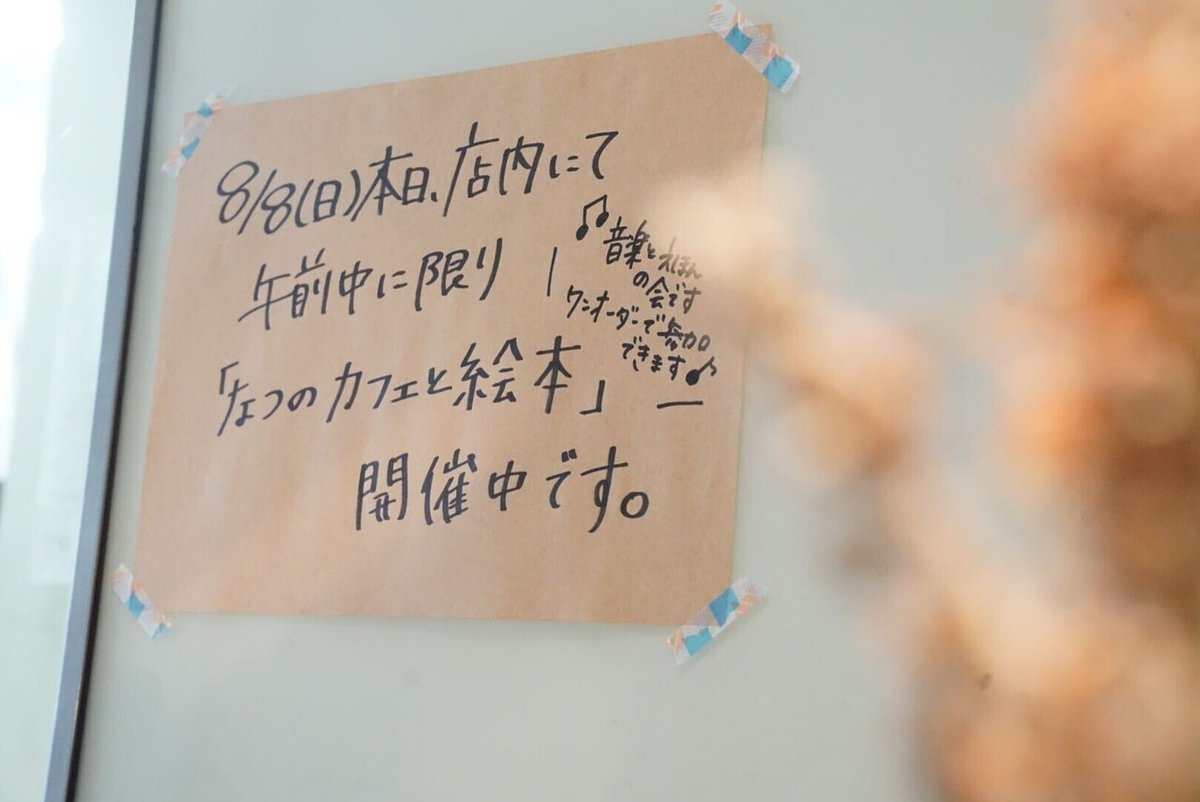 8/8(日)本日、店内にて
午前中に限り
「なつのカフェと絵本」
開催中です。
♫音楽とえほん
の会です
ワンオーダーで参加
できます♪